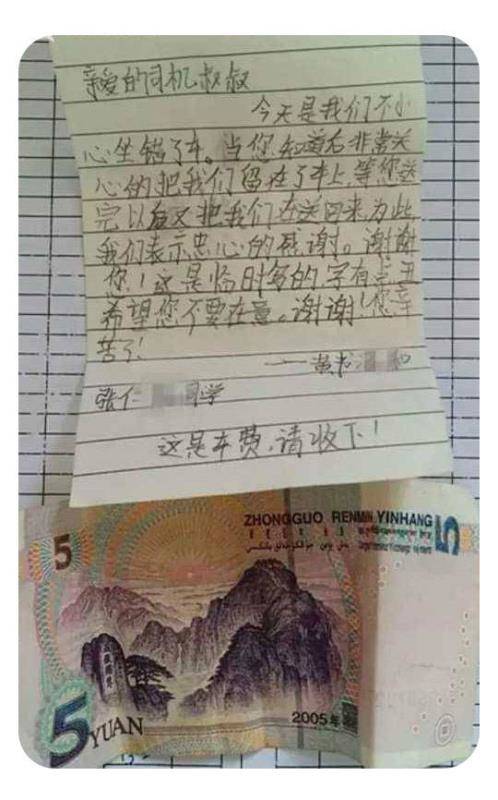 亲爱的司机叔叔
今天是我们不小
心坐错了车。当您知道后非常关
心的把我们留在了车上,等您送
完以后又把我们在送回来,为此
我们表示忠心的感谢。谢谢
您!这是临时写的,字有点丑
希望您不要在意。谢谢!您辛
苦了!
——黄 和
张仁 同学
这是车费,请收下!
ZHONGGUO RENMIN YINHANG
5
5
5 YUAN
2005年